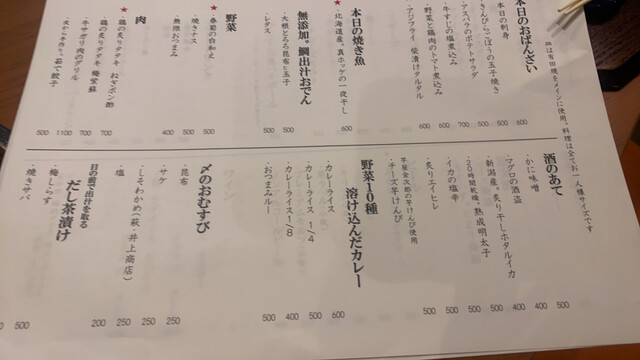 皿は有田焼をメインに使用。料理は全てお一人様サイズです
本日のおばんざい
・本日の刺身
・きんぴらごぼうの玉子焼き 500
・アスパラのポテトサラダ 500
・牛すじの塩煮込み 700
・野菜と鶏肉のトマト煮込み 600
・アジフライ 柴漬けタルタル 600
本日の焼き魚
★・北海道産。真ホッケの一夜干し 600
無添加。鯛出汁おでん
・大根とろろ昆布と玉子 500
・レタス 500
野菜
★・春菊の白和え 500
・焼きナス 500
・無限おつまみ 400
肉
★・鶏の炙りタタキ ねぎポン酢 700
・鶏の炙りタタキ 梅紫蘇 700
・牛サガリ肉のグリル 1100
・大から手作り。茹で餃子 500
酒のあて
・かに味噌 500
・マグロの酒盗 400
・新潟産。炙り干しホタルイカ 400
・20時間乾燥。熟成明太子 500
・イカの塩辛 500
・炙りエイヒレ 500
芋屋金次郎の芋けんぴ使用
・チーズ芋けんぴ
野菜10種
溶け込んだカレー
・カレーライス 600
・カレーライス 1/4 500
・カレーライス 1/8 400
・おつまみルー 500
〆のおむすび
・昆布 250
・サケ 250
・しそわかめ(萩・井上商店) 250
・塩 200
目の前で出汁を取る
だし茶漬け
・梅しらす 500
・焼きサバ